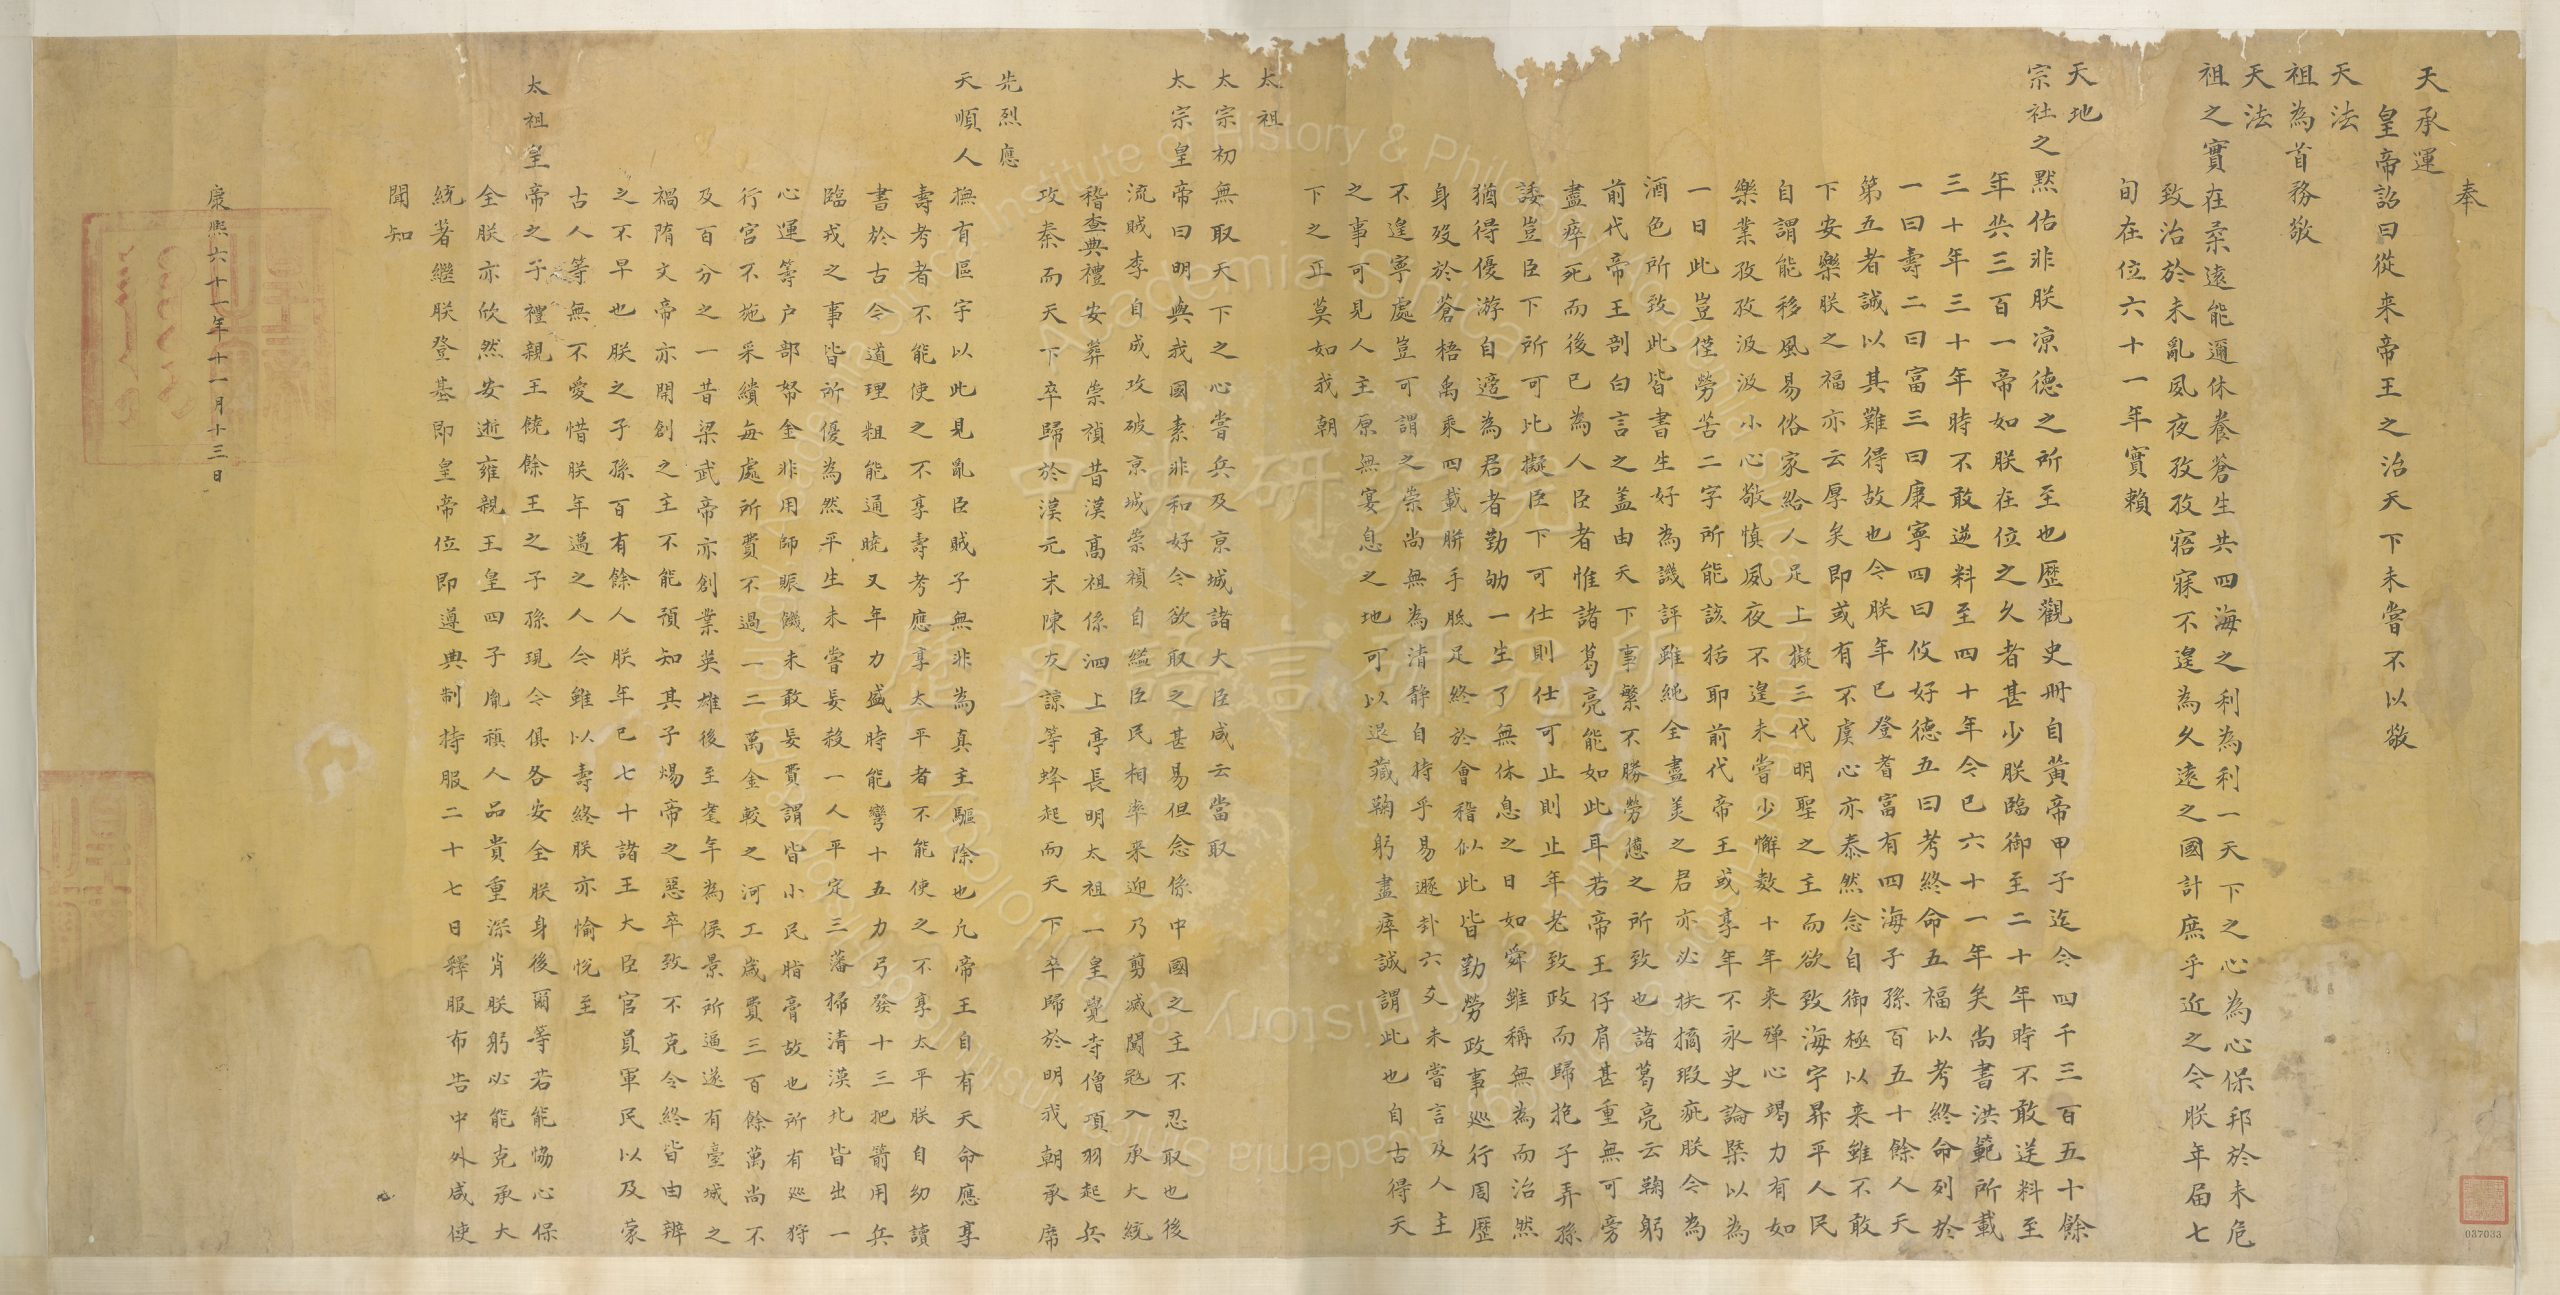 奉
天承運
皇帝詔曰從来帝王之治天下未嘗不以敬
天法
祖為首務敬
天法
祖之實在柔遠能邇休養蒼生共四海之利為利一天下之心為心保邦於未危
致治於未亂夙夜孜孜寤寐不遑為久遠之國計庶乎近之今朕年届七
旬在位六十一年實賴
天地
宗社之默佑非朕凉德之所至也歷觀史册自黄帝甲子迄今四千三百五十餘
年共三百一帝如朕在位之久者甚少朕臨御至二十年時不敢逆料至
三十年三十年時不敢逆料至四十年今已六十一年矣尚書洪範所載
一曰壽二曰富三曰康寧四曰攸好德五曰考終命五福以考終命列於
第五者誠以其難得故也今朕年已登耆富有四海子孫百五十餘人天
下安樂朕之福亦云厚矣即或有不虞心亦泰然念自御極以来雖不敢
自謂能移風易俗家給人足上擬三代明聖之主而欲致海宇昇平人民
樂業孜孜汲汲小心敬慎夙夜不遑未嘗少懈数十年来殫心竭力有如
一日此豈僅勞苦二字所能該括耶前代帝王或享年不永史論槩以為
酒色所致此皆書生好為譏評雖純全盡美之君亦必抉摘瑕疵朕今為
前代帝王剖白言之盖由天下事繁不勝勞憊之所致也諸葛亮云鞠躬
盡瘁死而後已為人臣者惟諸葛亮能如此耳若帝王仔肩甚重無可旁
諉豈臣下所可比擬臣下可仕則仕可止則止年老致政而歸抱子弄孫
猶得優游自適為君者勤劬一生了無休息之日如舜雖稱無為而治然
身殁於蒼梧禹乘四載胼手胝足終於會稽似此皆勤勞政事巡行周歷
不遑寧處豈可謂之崇尚無為清静自持乎易遯卦六爻未嘗言及人主
之事可見人主原無宴息之地可以退藏鞠躬盡瘁誠謂此也自古得天
下之正莫如我朝
太祖
太宗初無取天下之心嘗兵及京城諸大臣咸云當取
太宗皇帝曰明與我國素非和好今欲取之甚易但念係中國之主不忍取也後
流賊李自成攻破京城崇禎自縊臣民相率来迎乃剪滅闖冦入承大統
稽查典禮安葬崇禎昔漢高祖係泗上亭長明太祖一皇覺寺僧項羽起兵
攻秦而天下卒歸於漢元末陳友諒等蜂起而天下卒歸於明我朝承席
先烈應
天順人
撫有區宇以此見亂臣賊子無非為真主驅除也凡帝王自有天命應享
壽考者不能使之不享壽考應享太平者不能使之不享太平朕自幼讀
書於古今道理粗能通曉又年力盛時能彎十五力弓發十三把箭用兵
臨戎之事皆所優為然平生未嘗妄殺一人平定三藩掃清漠北皆出一
心運籌户部帑金非用師賑饑未敢妄費謂皆小民脂膏故也所有巡狩
行宮不施采繢每處所費不過一二萬金較之河工歲費三百餘萬尚不
及百分之一昔梁武帝亦創業英雄後至耄年為侯景所逼遂有臺城之
禍隋文帝亦開創之主不能預知其子煬帝之惡卒致不克令終皆由辨
之不早也朕之子孫百有餘人朕年已七十諸王大臣官員軍民以及蒙
古人等無不愛惜朕年邁之人今雖以壽終朕亦愉悅至
太祖皇帝之子禮親王饒餘王之子孫現今俱各安全朕身後爾等若能恊心保
全朕亦欣然安逝雍親王皇四子胤禛人品貴重深肖朕躬必能克承大
統著繼朕登基即皇帝位即遵典制持服二十七日釋服布告中外咸使
聞知
康熙六十一年十一月十三日
中央研究院
歷史語言研究所
Institute of History & Philology
Academia Sinica
037033